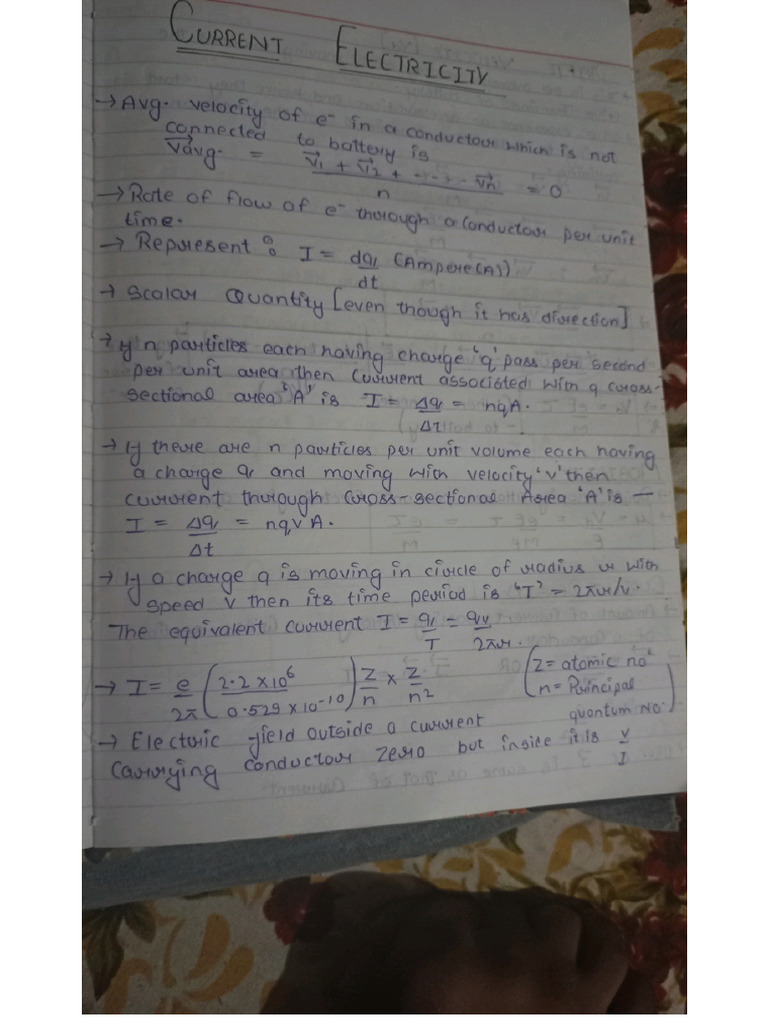 CURRENT ELECTRICITY
→ Avg. velocity of e⁻ in a conductor which is not
connected to battery is
v⃗avg. = v⃗1 + v⃗2 + ----- v⃗n / n = 0
→ Rate of flow of e⁻ through a conductor per unit
time.
→ Represent : I = dq/dt (Ampere(A))
→ Scalar Quantity [even though it has direction]
→ If n particles each having charge 'q' pass per second
per unit area then current associated with a cross-
sectional area 'A' is I = Δq/Δt = nqA.
→ If there are n particles per unit volume each having
a charge q and moving with velocity 'v' then
current through cross-sectional Area 'A' is —
I = Δq/Δt = nqvA.
→ If a charge q is moving in circle of radius r with
speed v then its time period is 'T' = 2πr/v.
The equivalent current I = q/T = qv/2πr.
→ I = e/2π (2.2 × 10⁶ / 0.529 × 10⁻¹⁰) Z/n × Z/n² (Z = atomic no.
n = Principal
quantum No.)
→ Electric field outside a current
carrying conductor zero but inside it is V/I